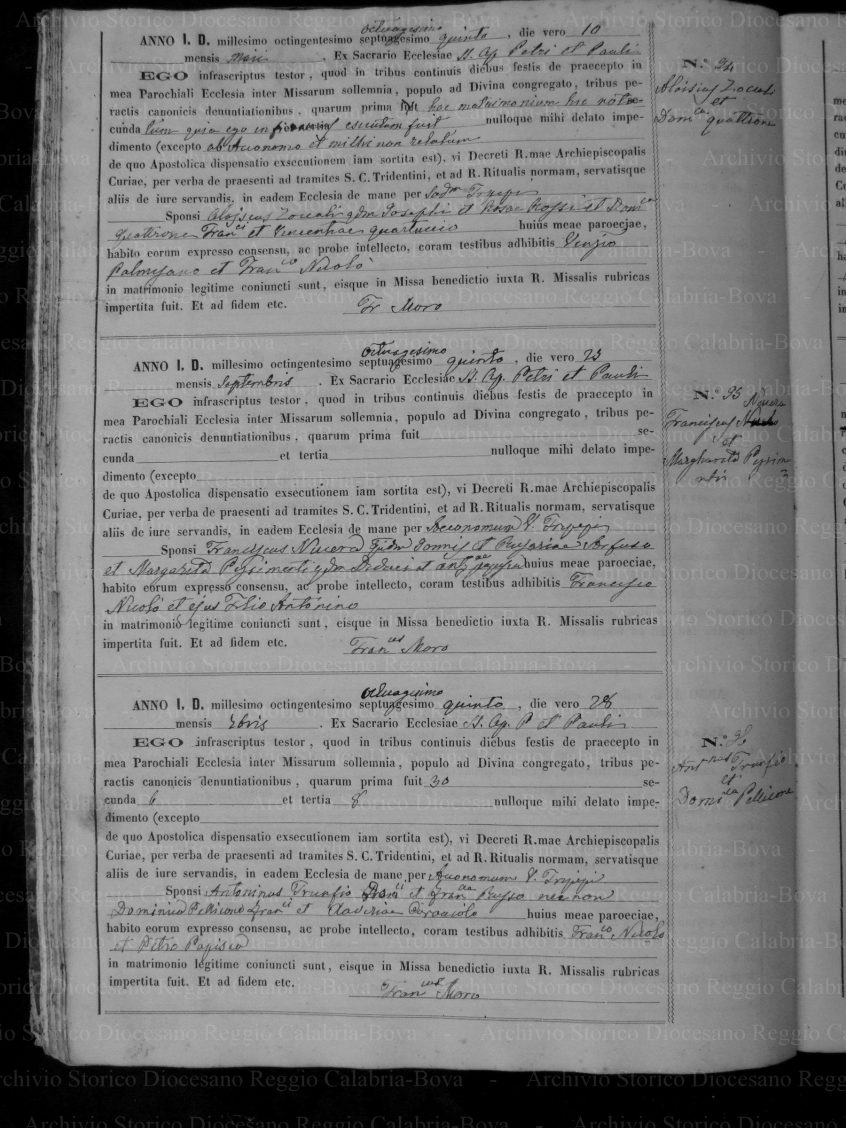 ANNO I. D. millesimo octingentesimo septuagesimo octuagesimo quinto, die vero 10
mensis Maii. Ex Sacrario Ecclesiae SS. Ap. Petri et Pauli
EGO infrascriptus testor, quod in tribus continuis diebus festis de praecepto in
mea Parochiali Ecclesia inter Missarum sollemnia, populo ad Divina congregato, tribus pe-
ractis canonicis denuntiationibus, quarum prima fuit hoc matrimonium hic
cunda tum quia ego fuit nulloque mihi delato impe-
dimento (excepto ab Aeconomo et mihi non relatum
de quo Apostolica dispensatio exsecutionem iam sortita est), vi Decreti R.mae Archiepiscopalis
Curiae, per verba de praesenti ad tramites S. C. Tridentini, et ad R. Ritualis normam, servatisque
aliis de iure servandis, in eadem Ecclesia de mane per
Sponsi et Rosae et Domca
Quattrone Franci et huius meae paroeciae,
habito eorum expresso consensu, ac probe intellecto, coram testibus adhibitis
Palmisano et Franco Nicolò
in matrimonio legitime coniuncti sunt, eisque in Missa benedictio iuxta R. Missalis rubricas
impertita fuit. Et ad fidem etc. Fr Moro
N.° 94
Aloisius
et
Domca Quattrone
ANNO I. D. millesimo octingentesimo septuagesimo octuagesimo quinto, die vero 23
mensis Septembris. Ex Sacrario Ecclesiae SS. Ap. Petri et Pauli
EGO infrascriptus testor, quod in tribus continuis diebus festis de praecepto in
mea Parochiali Ecclesia inter Missarum sollemnia, populo ad Divina congregato, tribus pe-
ractis canonicis denuntiationibus, quarum prima fuit se-
cunda et tertia nulloque mihi delato impe-
dimento (excepto
de quo Apostolica dispensatio exsecutionem iam sortita est), vi Decreti R.mae Archiepiscopalis
Curiae, per verba de praesenti ad tramites S. C. Tridentini, et ad R. Ritualis normam, servatisque
aliis de iure servandis, in eadem Ecclesia de mane per Aeconomum V.
Sponsi Franciscus Nucera et Rosariae
et Margarita huius meae paroeciae,
habito eorum expresso consensu, ac probe intellecto, coram testibus adhibitis Francisco
Nicolò et ejus Filio Antonino
in matrimonio legitime coniuncti sunt, eisque in Missa benedictio iuxta R. Missalis rubricas
impertita fuit. Et ad fidem etc. Francus Moro
N.° 95
Franciscus Nucera
et
Margherita
ANNO I. D. millesimo octingentesimo septuagesimo octuagesimo quinto, die vero 28
mensis Ex Sacrario Ecclesiae SS. Ap. P et Pauli
EGO infrascriptus testor, quod in tribus continuis diebus festis de praecepto in
mea Parochiali Ecclesia inter Missarum sollemnia, populo ad Divina congregato, tribus pe-
ractis canonicis denuntiationibus, quarum prima fuit 30 se-
cunda 6 et tertia 8 nulloque mihi delato impe-
dimento (excepto
de quo Apostolica dispensatio exsecutionem iam sortita est), vi Decreti R.mae Archiepiscopalis
Curiae, per verba de praesenti ad tramites S. C. Tridentini, et ad R. Ritualis normam, servatisque
aliis de iure servandis, in eadem Ecclesia de mane per Aeconomum V.
Sponsi Antoninus Trunfio et Russo necnon
Dominica Pellicone Franci et huius meae paroeciae,
habito eorum expresso consensu, ac probe intellecto, coram testibus adhibitis Franco Nicolò
et Petro
in matrimonio legitime coniuncti sunt, eisque in Missa benedictio iuxta R. Missalis rubricas
impertita fuit. Et ad fidem etc. Francus Moro
N.°
Antnus Trunfio
et
Domica Pellicone
Archivio Storico Diocesano Reggio Calabria-Bova